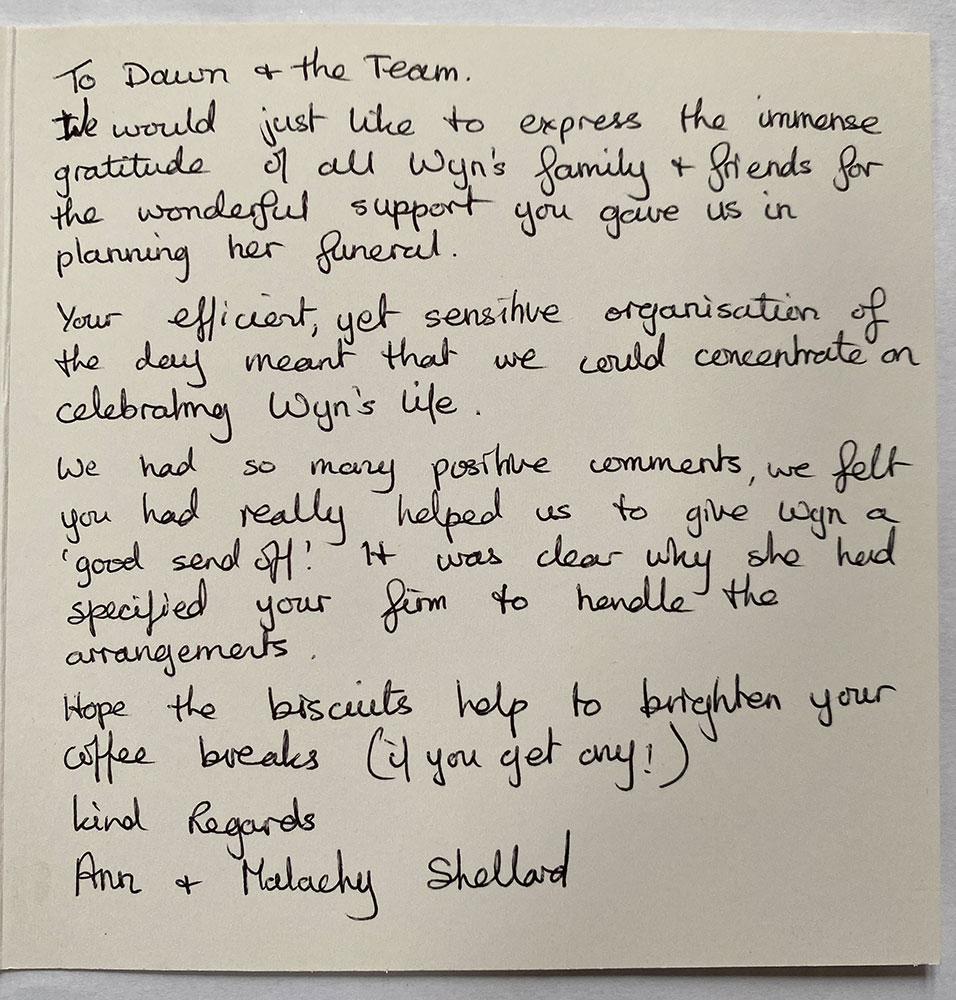 To Dawn + the Team.
We would just like to express the immense
gratitude of all Wyn's family + friends for
the wonderful support you gave us in
planning her funeral.
Your efficient, yet sensitive organisation of
the day meant that we could concentrate on
celebrating Wyn's life.
We had so many positive comments, we felt
you had really helped us to give Wyn a
'good send off'. It was clear why she had
specified your firm to handle the
arrangements.
Hope the biscuits help to brighten your
coffee breaks (if you get any!)
Kind Regards
Ann + Malachy Shellard